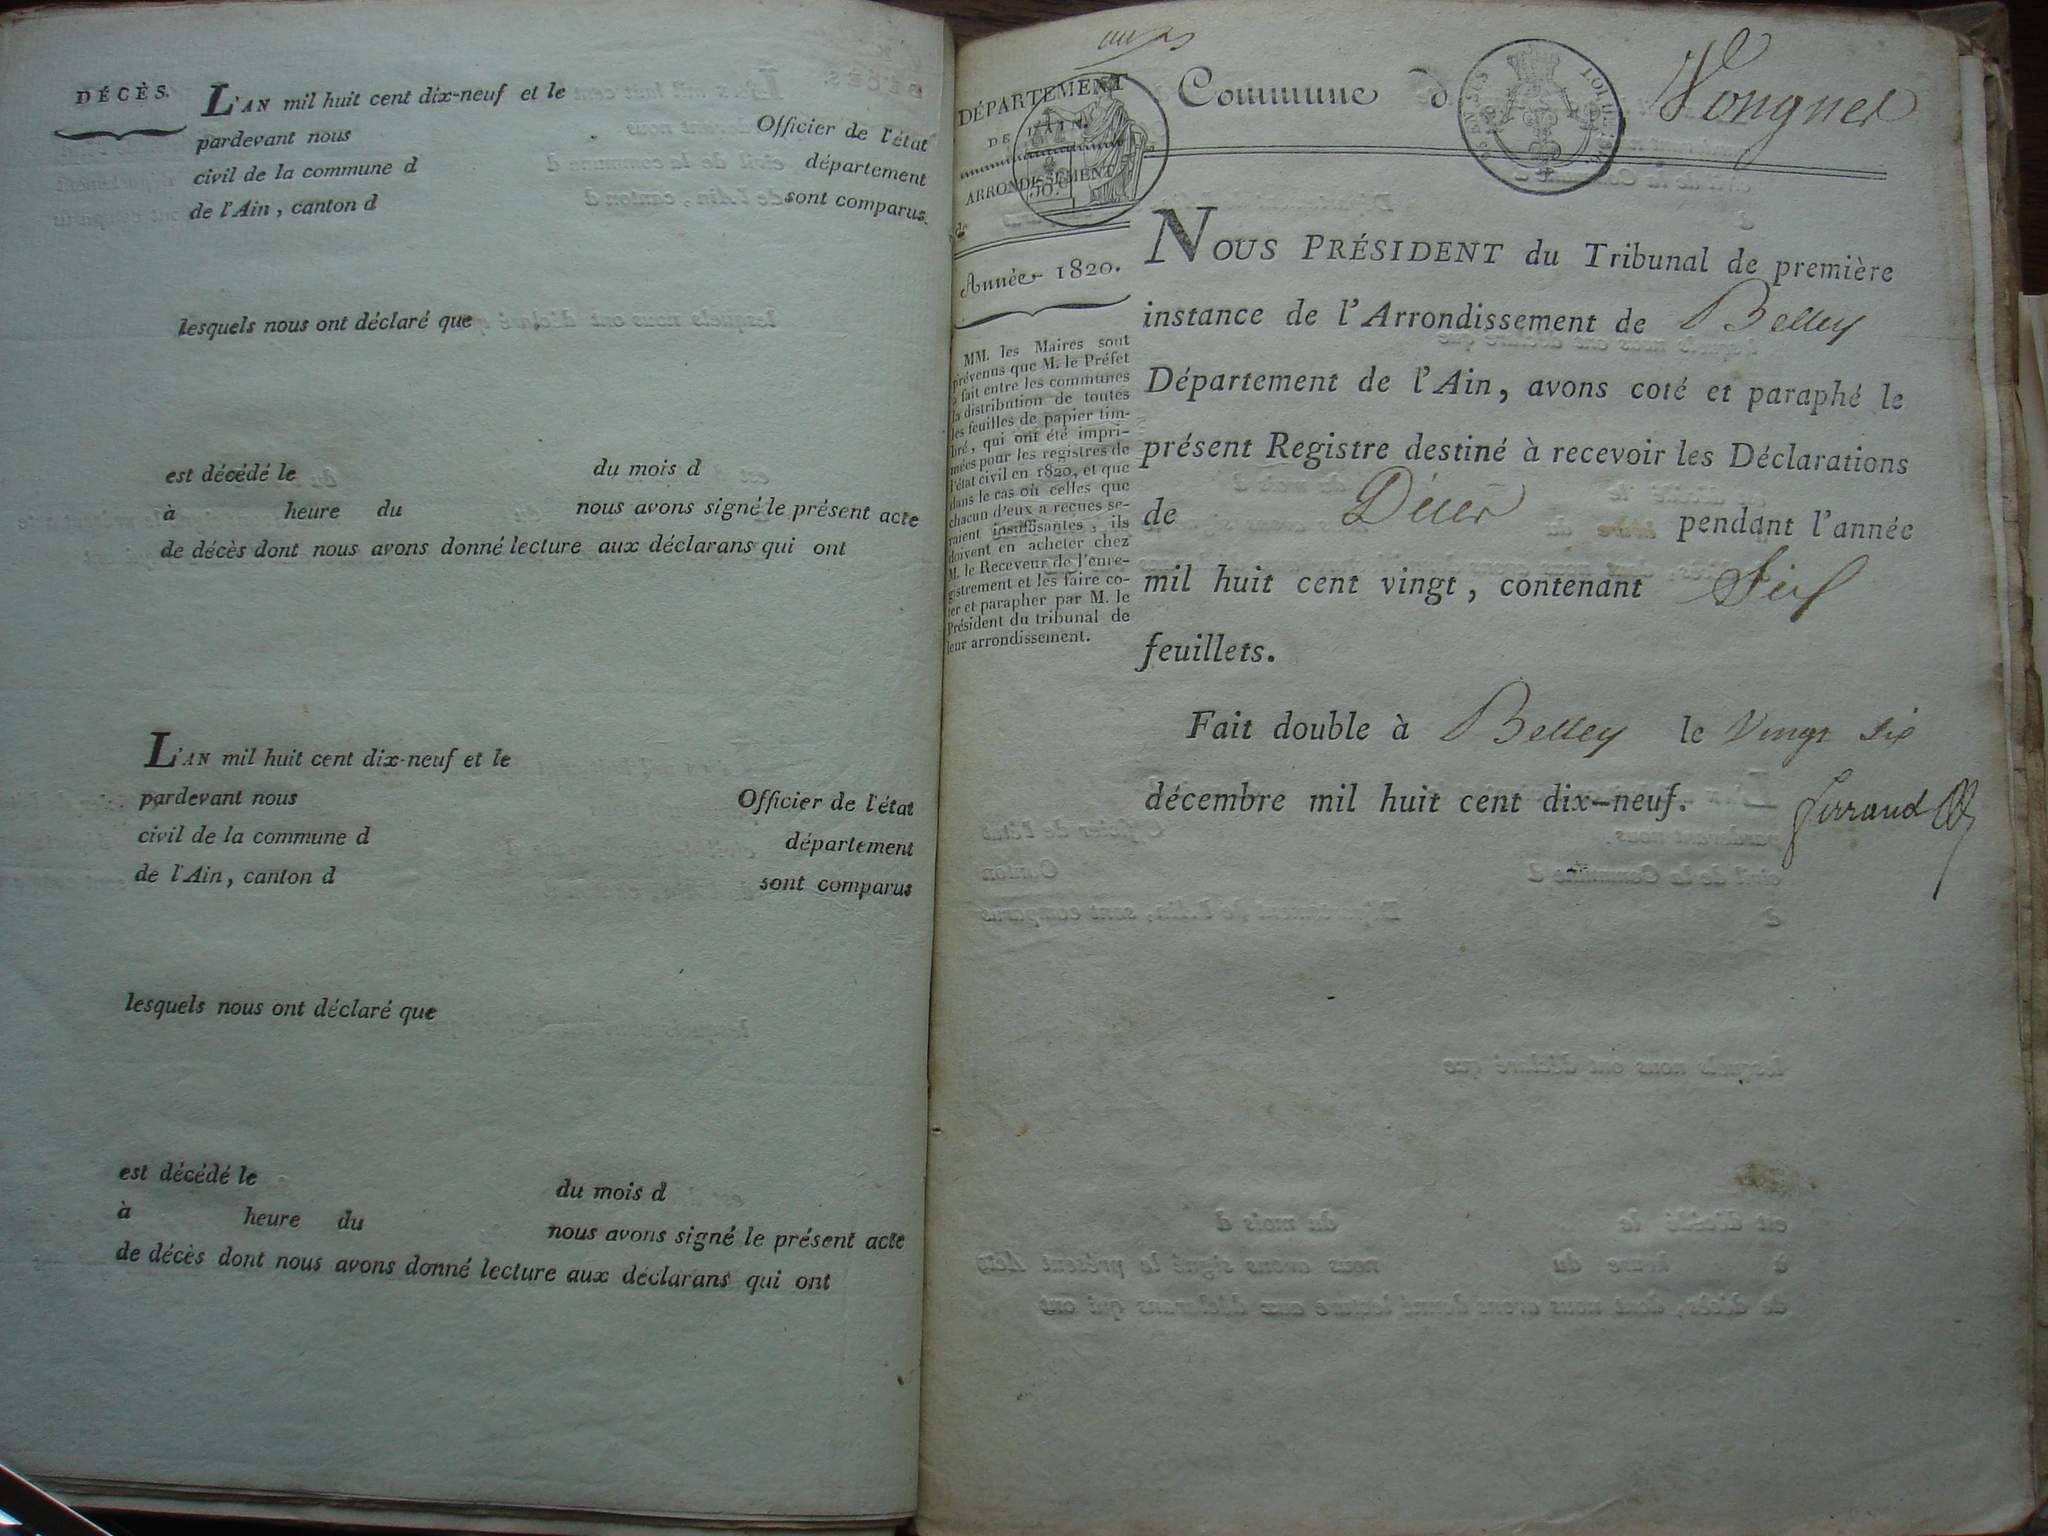 DÉCÈS.
L'AN mil huit cent dix-neuf et le
pardevant nous Officier de l'état
civil de la commune d département
de l'Ain, canton d sont comparus
lesquels nous ont déclaré que
est décédé le du mois d
à heure du nous avons signé le présent acte
de décès dont nous avons donné lecture aux déclarans qui ont
L'AN mil huit cent dix-neuf et le
pardevant nous Officier de l'état
civil de la commune d département
de l'Ain, canton d sont comparus
lesquels nous ont déclaré que
est décédé le du mois d
à heure du nous avons signé le présent acte
de décès dont nous avons donné lecture aux déclarans qui ont
DÉPARTEMENT
DE L'AIN.
ARRONDISSEMENT
de
Année 1820.
MM. les Maires sont
prévenus que M. le Préfet
a fait entre les communes
la distribution de toutes
les feuilles de papier tim-
bré, qui ont été impri-
mées pour les registres de
l'état civil en 1820, et que
dans le cas où celles que
chacun d'eux a reçues se-
raient insuffisantes, ils
doivent en acheter chez
M. le Receveur de l'enre-
gistrement et les faire co-
ter et parapher par M. le
Président du tribunal de
leur arrondissement.
Commune d Vongnes
NOUS PRÉSIDENT du Tribunal de première
instance de l'Arrondissement de Belley
Département de l'Ain, avons coté et paraphé le
présent Registre destiné à recevoir les Déclarations
de Décès pendant l'année
mil huit cent vingt, contenant Six
feuillets.
Fait double à Belley le Vingt Six
décembre mil huit cent dix-neuf.